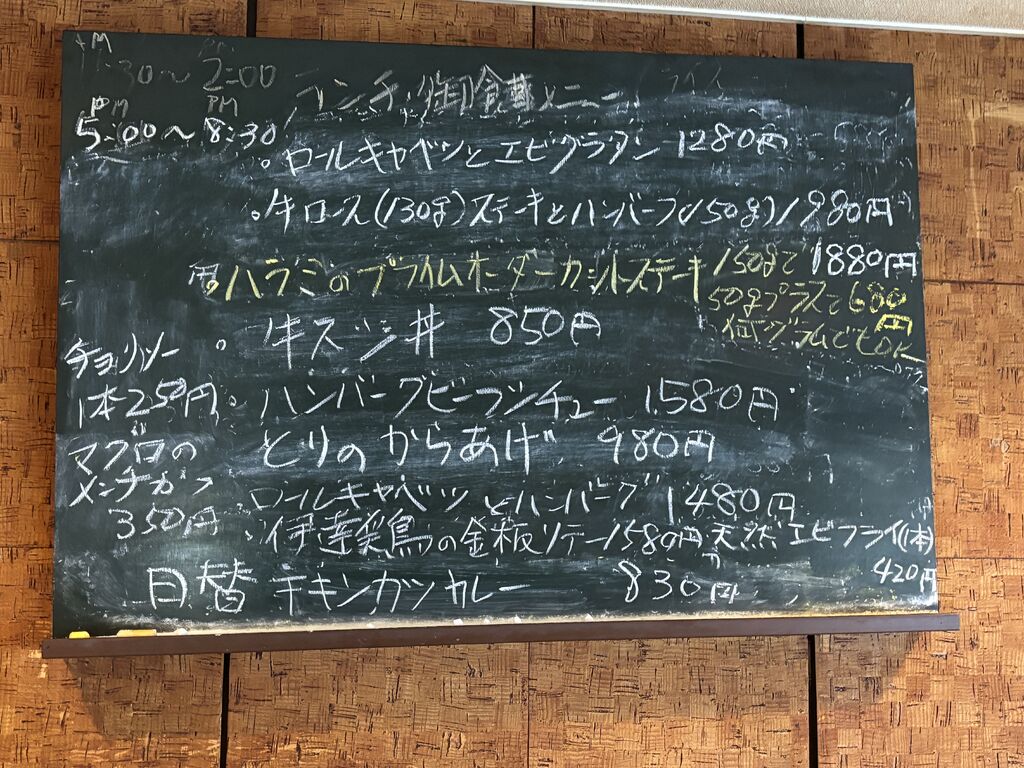 AM PM
11:30～2:00
PM PM
5:00～8:30
ランチ 御食事メニュー
ライス
。ロールキャベツとエビグラタン 1280円
。牛ロース(130g)ステキとハンバーグ(150g)1980円
ハラミのプライムオーダーカットステーキ150gで1880円
50gプラスで680円
何グラムでもOK
。牛スジ丼 850円
。ハンバーグビーフシチュー 1580円
とりのからあげ 980円
ロールキャベツとハンバーグ 1480円
・伊達鶏の金板ソテー1580円
天然エビフライ(1本)
420円
日替 チキンカツカレー 830円
チョリソー
1本250円
マグロの
メンチカツ
350円